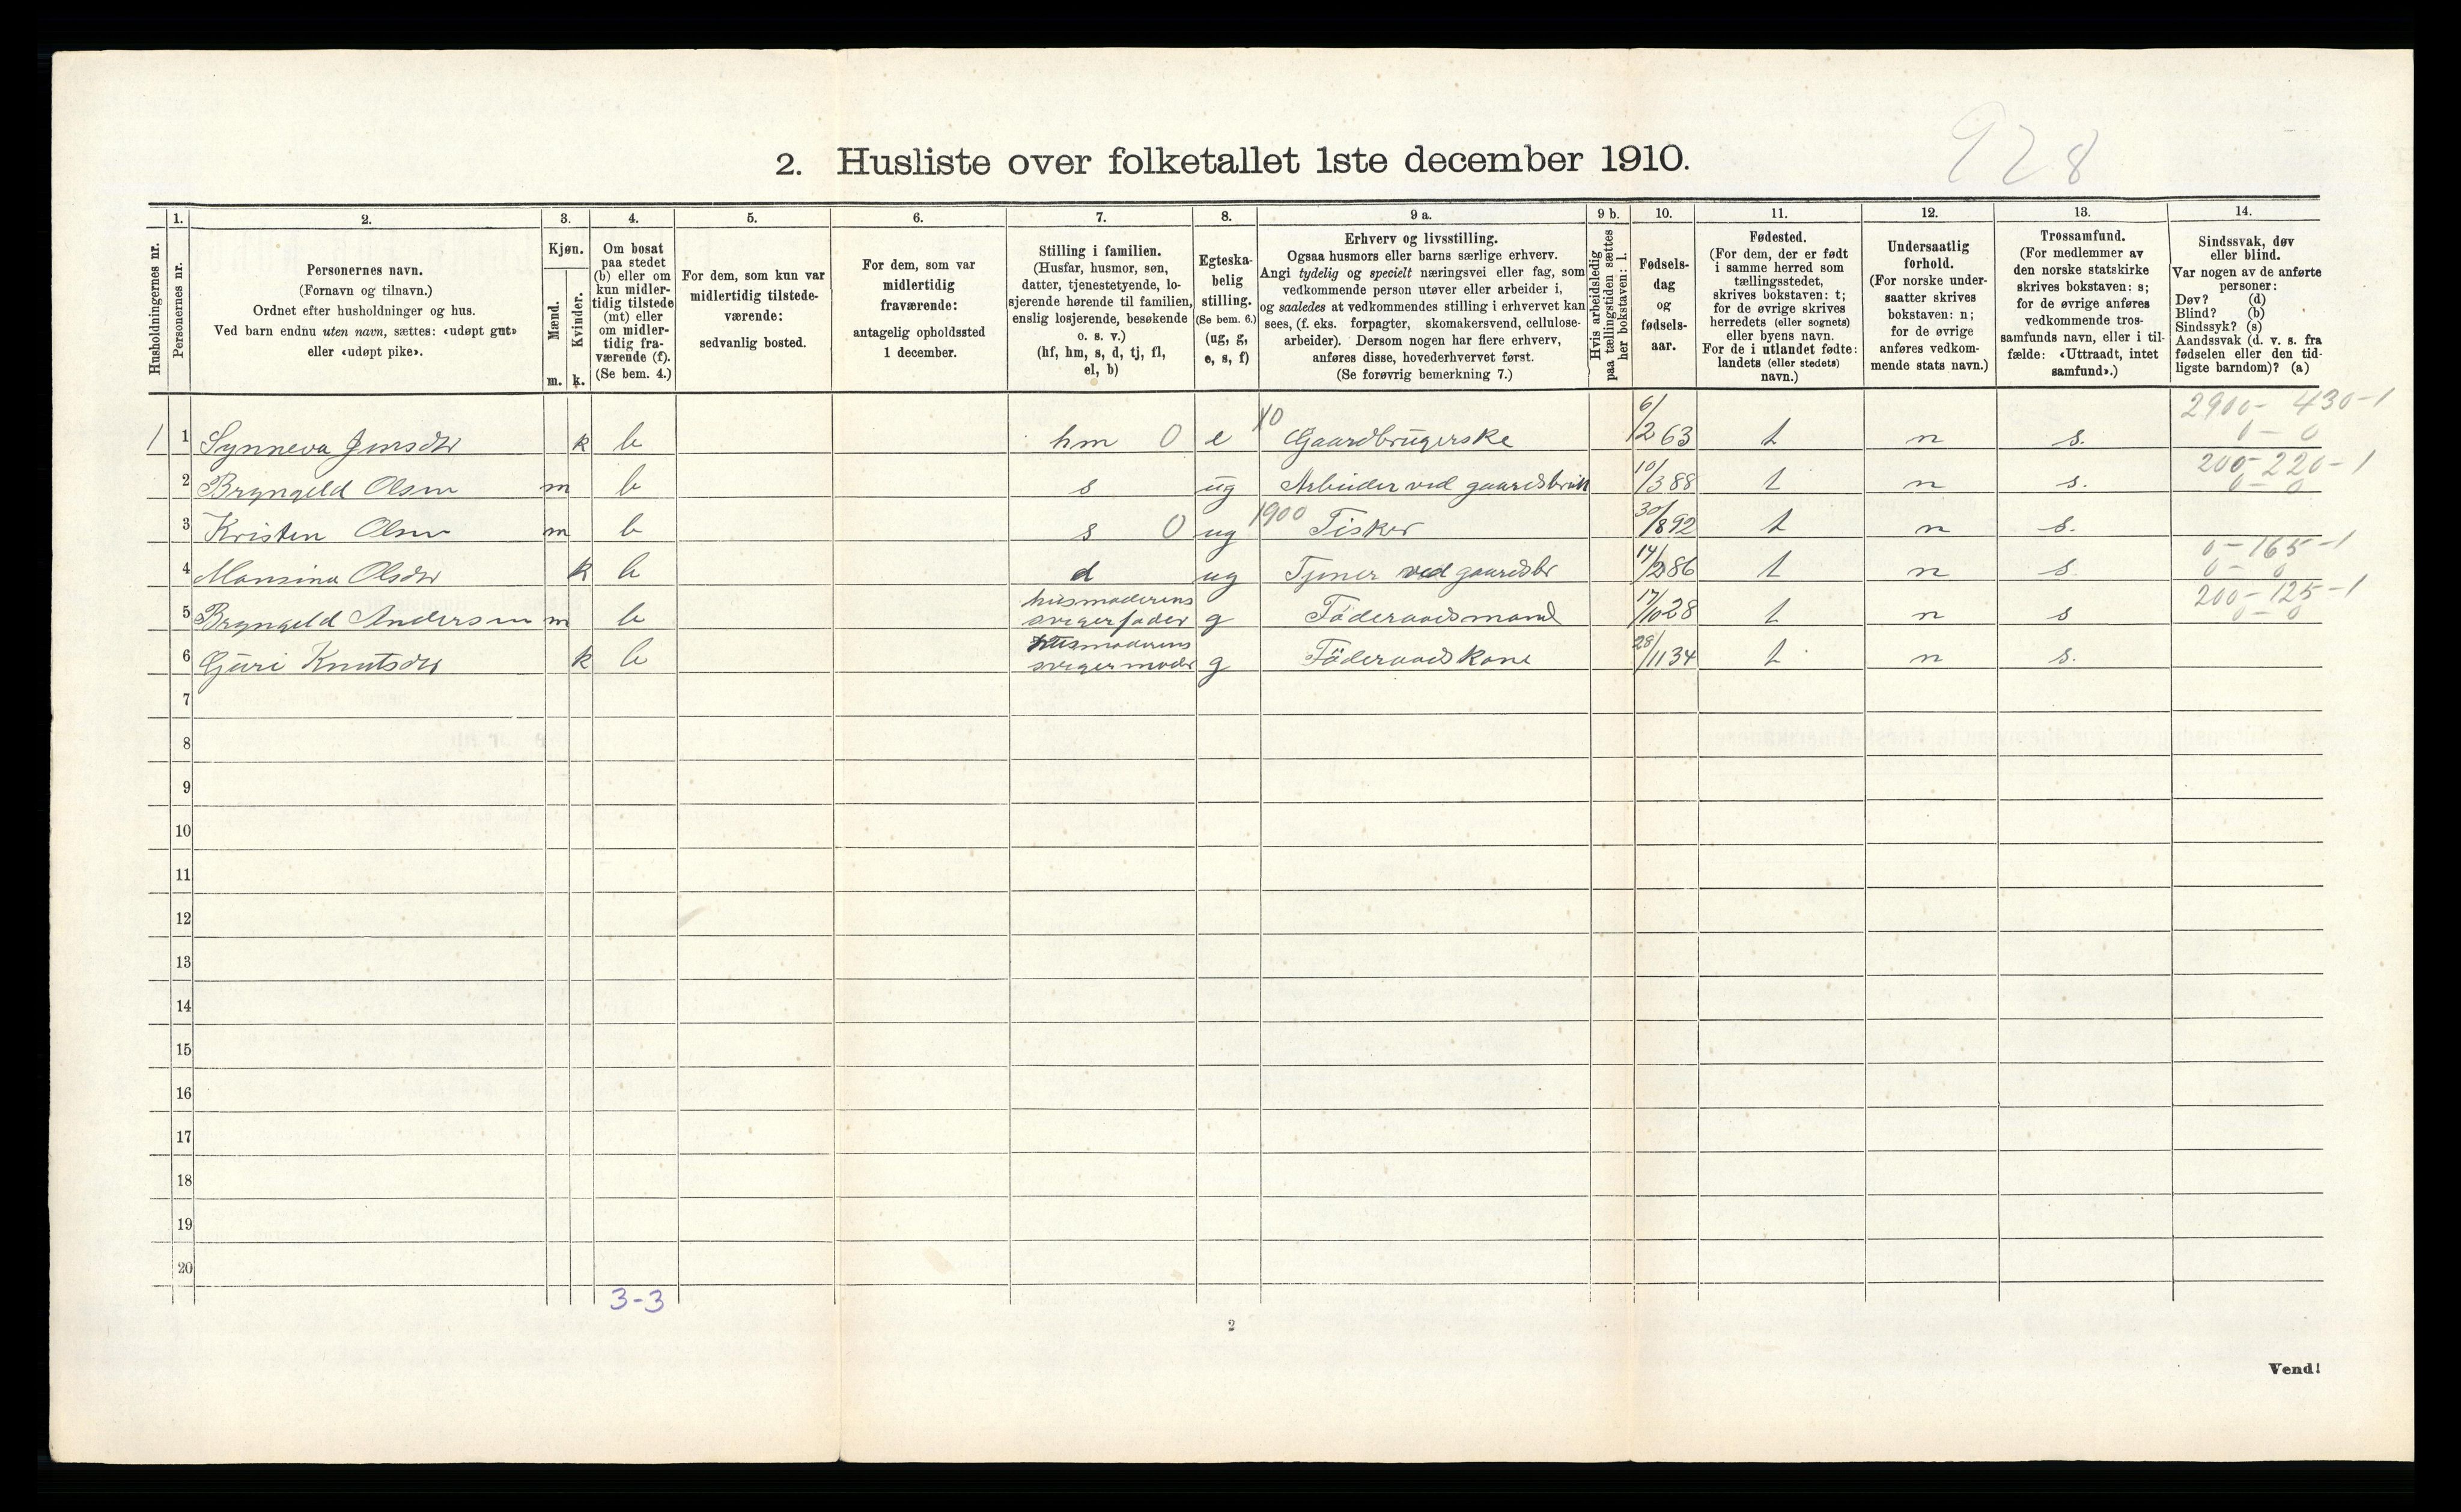 928
2. Husliste over folketallet 1ste december 1910.
Husholdningernes nr.
1.
Personernes nr.
2.
Personernes navn.
(Fornavn og tilnavn.)
Ordnet efter husholdninger og hus.
Ved barn endnu uten navn, sættes: «udøpt gut»
eller «udøpt pike».
3.
Kjøn.
Mænd.
Kvinder.
m. k.
4.
Om bosat
paa stedet
(b) eller om
kun midler-
tidig tilstede
(mt) eller
om midler-
tidig fra-
værende (f).
(Se bem. 4.)
5.
For dem, som kun var
midlertidig tilstede-
værende:
sedvanlig bosted.
6.
For dem, som var
midlertidig
fraværende:
antagelig opholdssted
1 december.
7.
Stilling i familien.
(Husfar, husmor, søn,
datter, tjenestetyende, lo-
sjerende hørende til familien,
enslig losjerende, besøkende
o. s. v.)
(hf, hm, s, d, tj, fl,
el, b)
8.
Egteska-
belig
stilling.
(Se bem. 6.)
(ug, g,
e, s, f)
9 a.
Erhverv og livsstilling.
Ogsaa husmors eller barns særlige erhverv.
Angi tydelig og specielt næringsvei eller fag, som
vedkommende person utøver eller arbeider i,
og saaledes at vedkommendes stilling i erhvervet kan
sees, (f. eks. forpagter, skomakersvend, cellulose-
arbeider). Dersom nogen har flere erhverv,
anføres disse, hovederhvervet først.
(Se forøvrig bemerkning 7.)
9 b.
Hvis arbeidsledig
paa tællingstiden sættes
her bokstaven: l.
10.
Fødsels-
dag
og
fødsels-
aar.
11.
Fødested.
(For dem, der er født
i samme herred som
tællingsstedet,
skrives bokstaven: t;
for de øvrige skrives
herredets (eller sognets)
eller byens navn.
For de i utlandet fødte:
landets (eller stedets)
navn.)
12.
Undersaatlig
forhold.
(For norske under-
saatter skrives
bokstaven: n;
for de øvrige
anføres vedkom-
mende stats navn.)
13.
Trossamfund.
(For medlemmer av
den norske statskirke
skrives bokstaven: s;
for de øvrige anføres
vedkommende tros-
samfunds navn, eller i til-
fælde: «Uttraadt, intet
samfund».)
14.
Sindssvak, døv
eller blind.
Var nogen av de anførte
personer:
Døv? (d)
Blind? (b)
Sindssyk? (s)
Aandssvak (d. v. s. fra
fødselen eller den tid-
ligste barndom)? (a)
1 1 Synneva Jensdtr k b hm 0 e 10 Gaardbrugerske 6/2 63 t n s. 2900 - 430 - 1
0 - 0
2 Bryngeld Olsen m b s ug Arbeider ved gaardsbruk 10/3 88 t n s. 200 - 220 - 1
0 - 0
3 Kristen Olsen m b s 0 ug 1900 Fisker 30/8 92 t n s.
4 Mansina Olsdtr k b d ug Tjener ved gaardsbr 14/2 86 t n s. 0 - 165 - 1
0 - 0
5 Bryngeld Andersen m b husmoderens svigerfader g Föderaadsmand 17/10 28 t n s 200 - 125 - 1
0 - 0
6 Guri Knutsdtr k b husmoderens svigermoder g Föderaadskone 28/11 34 t n s.
7
8
9
10
11
12
13
14
15
16
17
18
19
20
3-3
2
Vend!